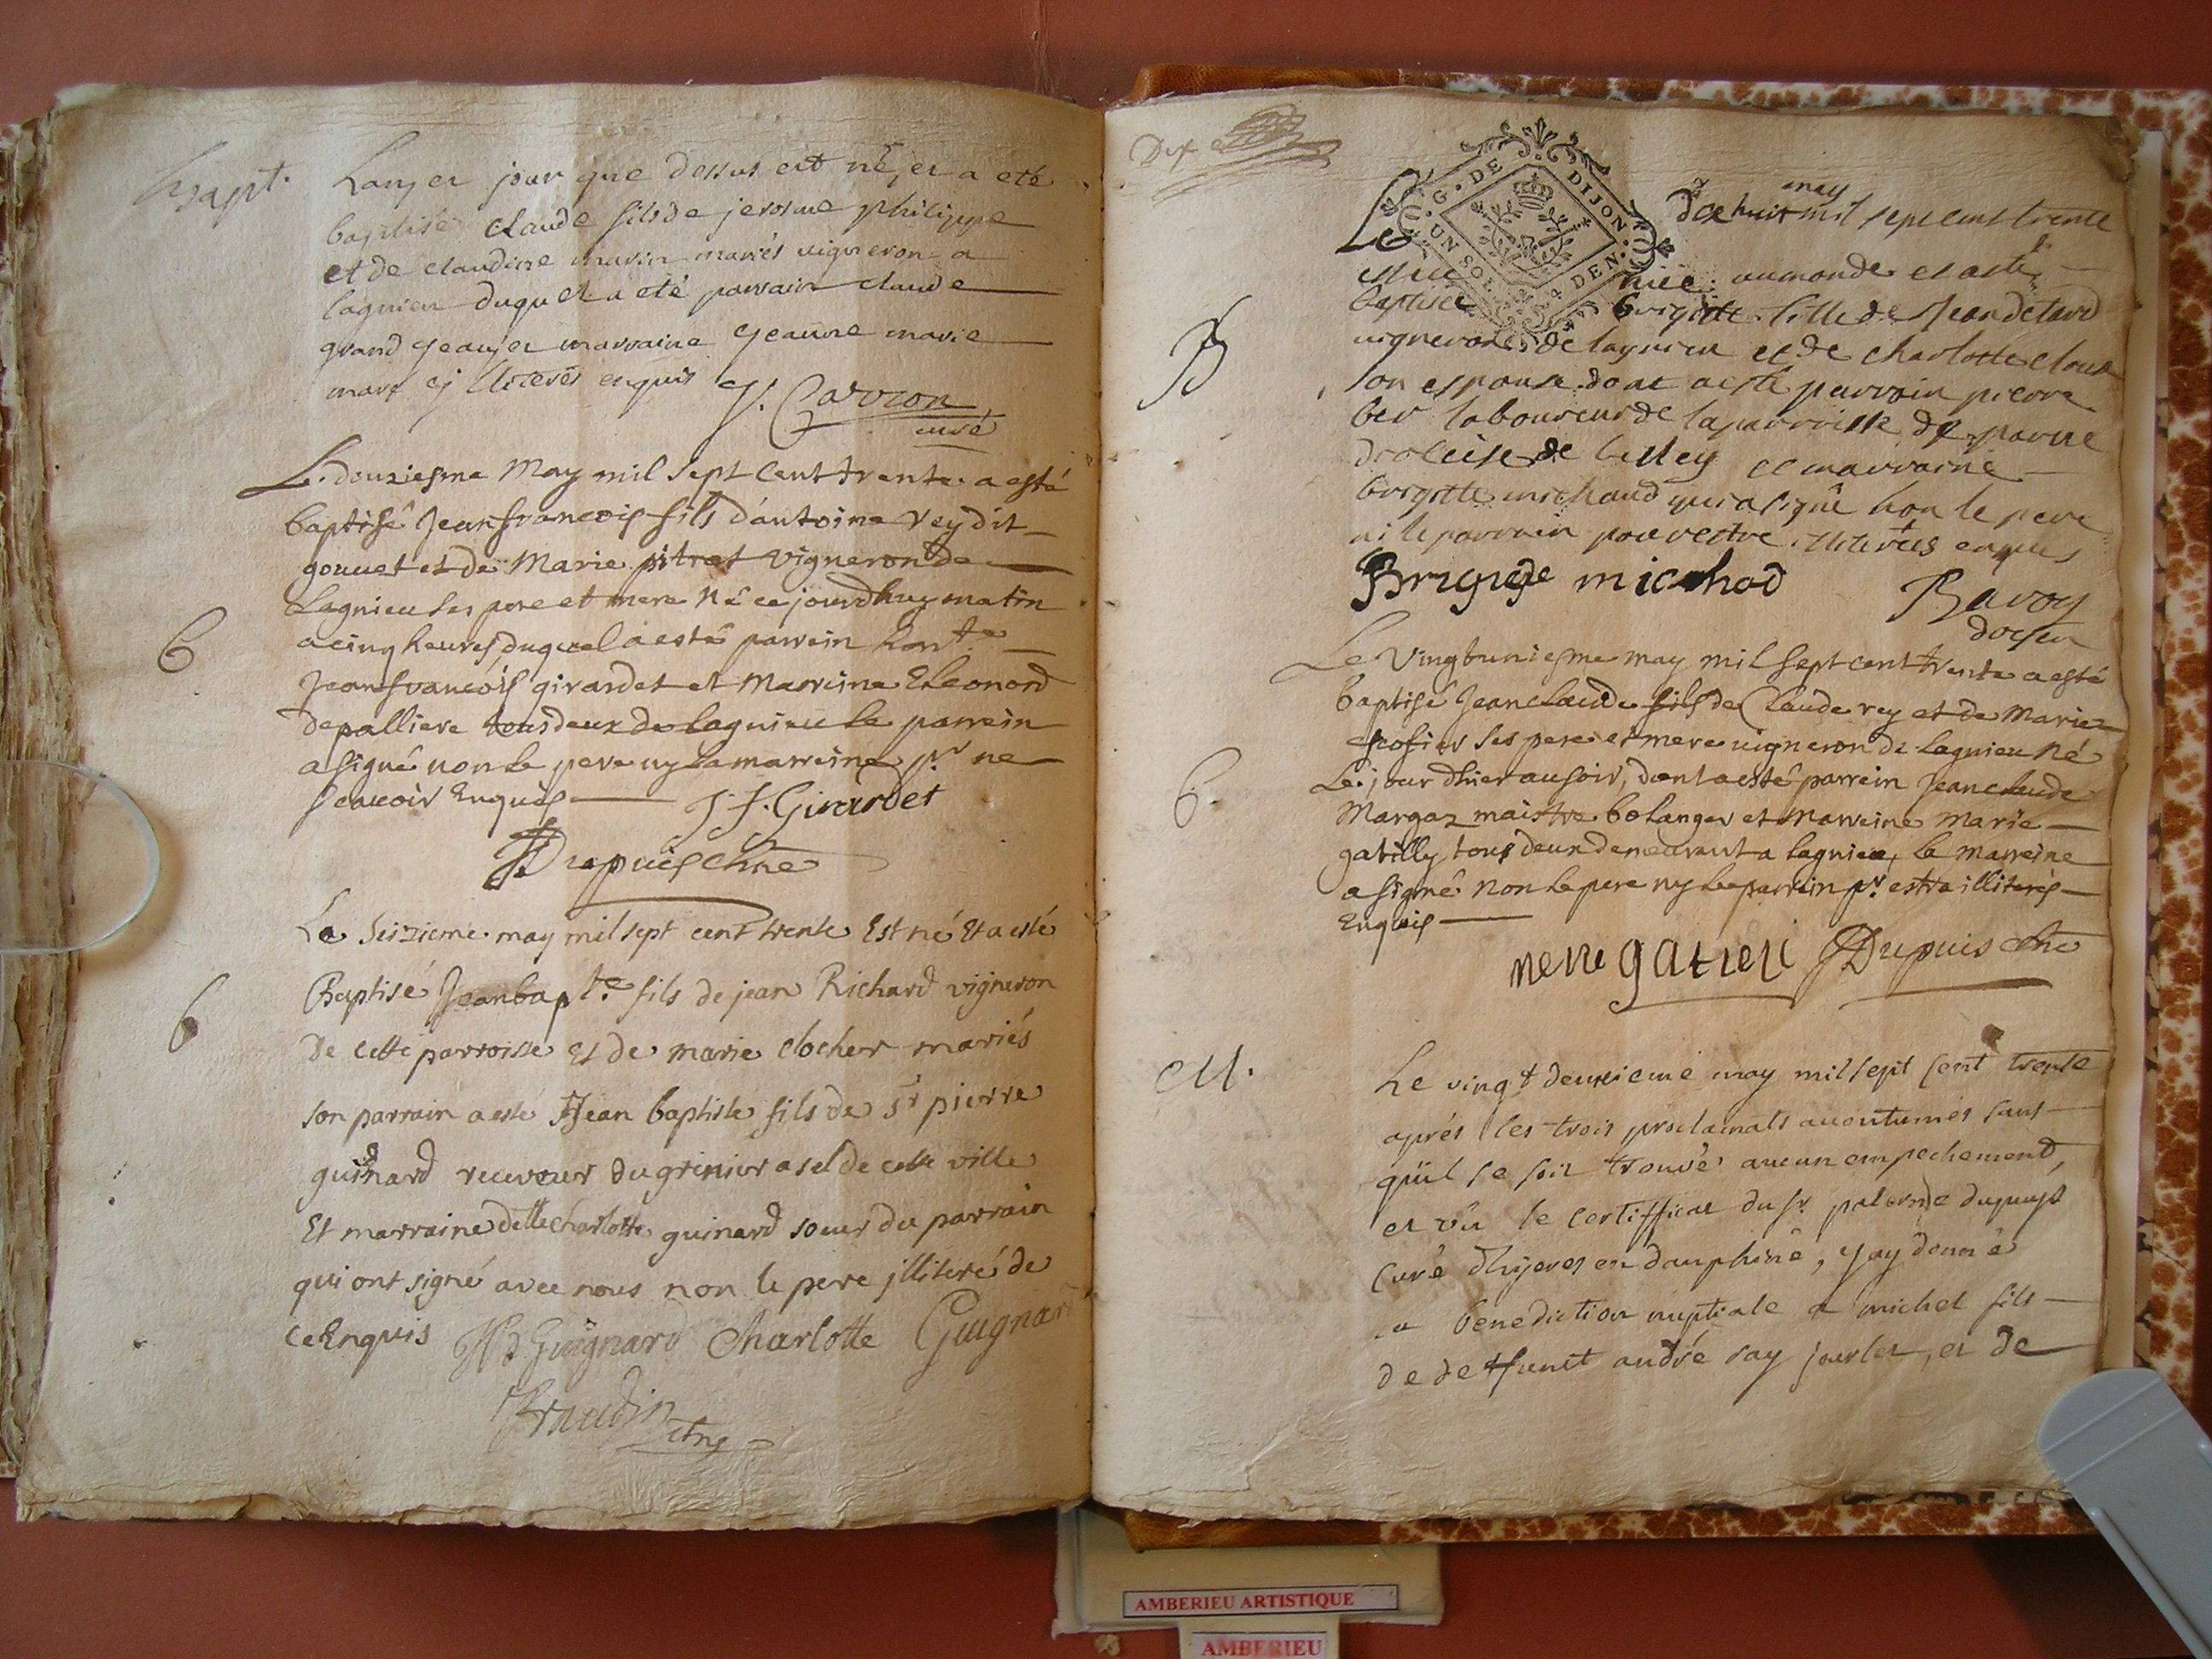 Bapt.
Lan, et jour que dessus est né, et a eté
baptisé claude fils de jerosme philippe
et de claudine mariés vigneron a
lagnieu duquel a eté parrain claude
grand et marraine jeanne marie
illiterés enquis J. Carron
curé
Le douziesme May mil sept cent trente a esté
baptisé Jean francois fils d'antoine Rey dit
gouuet et de Marie pitrat vigneron de
Lagnieu ses pere et mere Né ce jourdhuy matin
B
a cinq heures, duquel a esté parrein hon.te
Jean francois girardet et Marreine Eleonord
depalliere tous deux de lagnieu le parrein
a signé non le pere ny la marreine p.r ne
scauoir Enquis J. f. Girardet
Dupuis
Le Seizieme may mil sept cent trente Est né Et a esté
Baptisé Jean bap.te fils de jean Richard vigneron
B
De cette parroisse Et de marie clocher mariés
son parrain a esté Jean baptiste fils de Sr pierre
guinard receveur du grenier a sel de cette ville
Et marraine delle charlotte guinard soeur du parrain
qui ont signé avec nous non le pere jlliteré de
ce Enquis Guignard Charlotte Guignard

G. DE DIJON. UN SOL 4 DEN.
may
Le dix huit mil sept cens trente
est née au monde et a esté
baptisée brigitte fille de Jean detard
B
vigneron de lagnieu et de charlotte
son espouse dont a esté parrain pierre
ber laboureur de la parroisse de
diocèse de belley et marraine
brigitte michaud qui a signé non le pere
ni le parrain pour estre illiterés enquis
Brigide micohod
Bavoz
doyen
Le vingtuniesme may mil sept cent trente a esté
baptisé Jean claude fils de Claude rey et de Marie
escofier ses pere et mere vigneron de lagnieu Né
B.
Le jour d'hier au soir, dont a esté parrein Jean claude
Margaz maistre bolanger et Marreine Marie
gatilly tous deux demeurant a lagnieu, la Marreine
a signé non le pere ny le parrein p.r estre illiterés
Enquis
Dupuis
M.
Le vingt deuxieme may mil sept cent trente
aprés les trois proclamats accoutumés sans
qu'il se soit trouvé aucun empechement,
et vû le certifficat du Sr. dupuys
curé d'hyeres en dauphiné, j'ay donné
la benediction nuptiale a michel fils
de deffunct andré ray, et de
AMBERIEU ARTISTIQUE
AMBERIEU